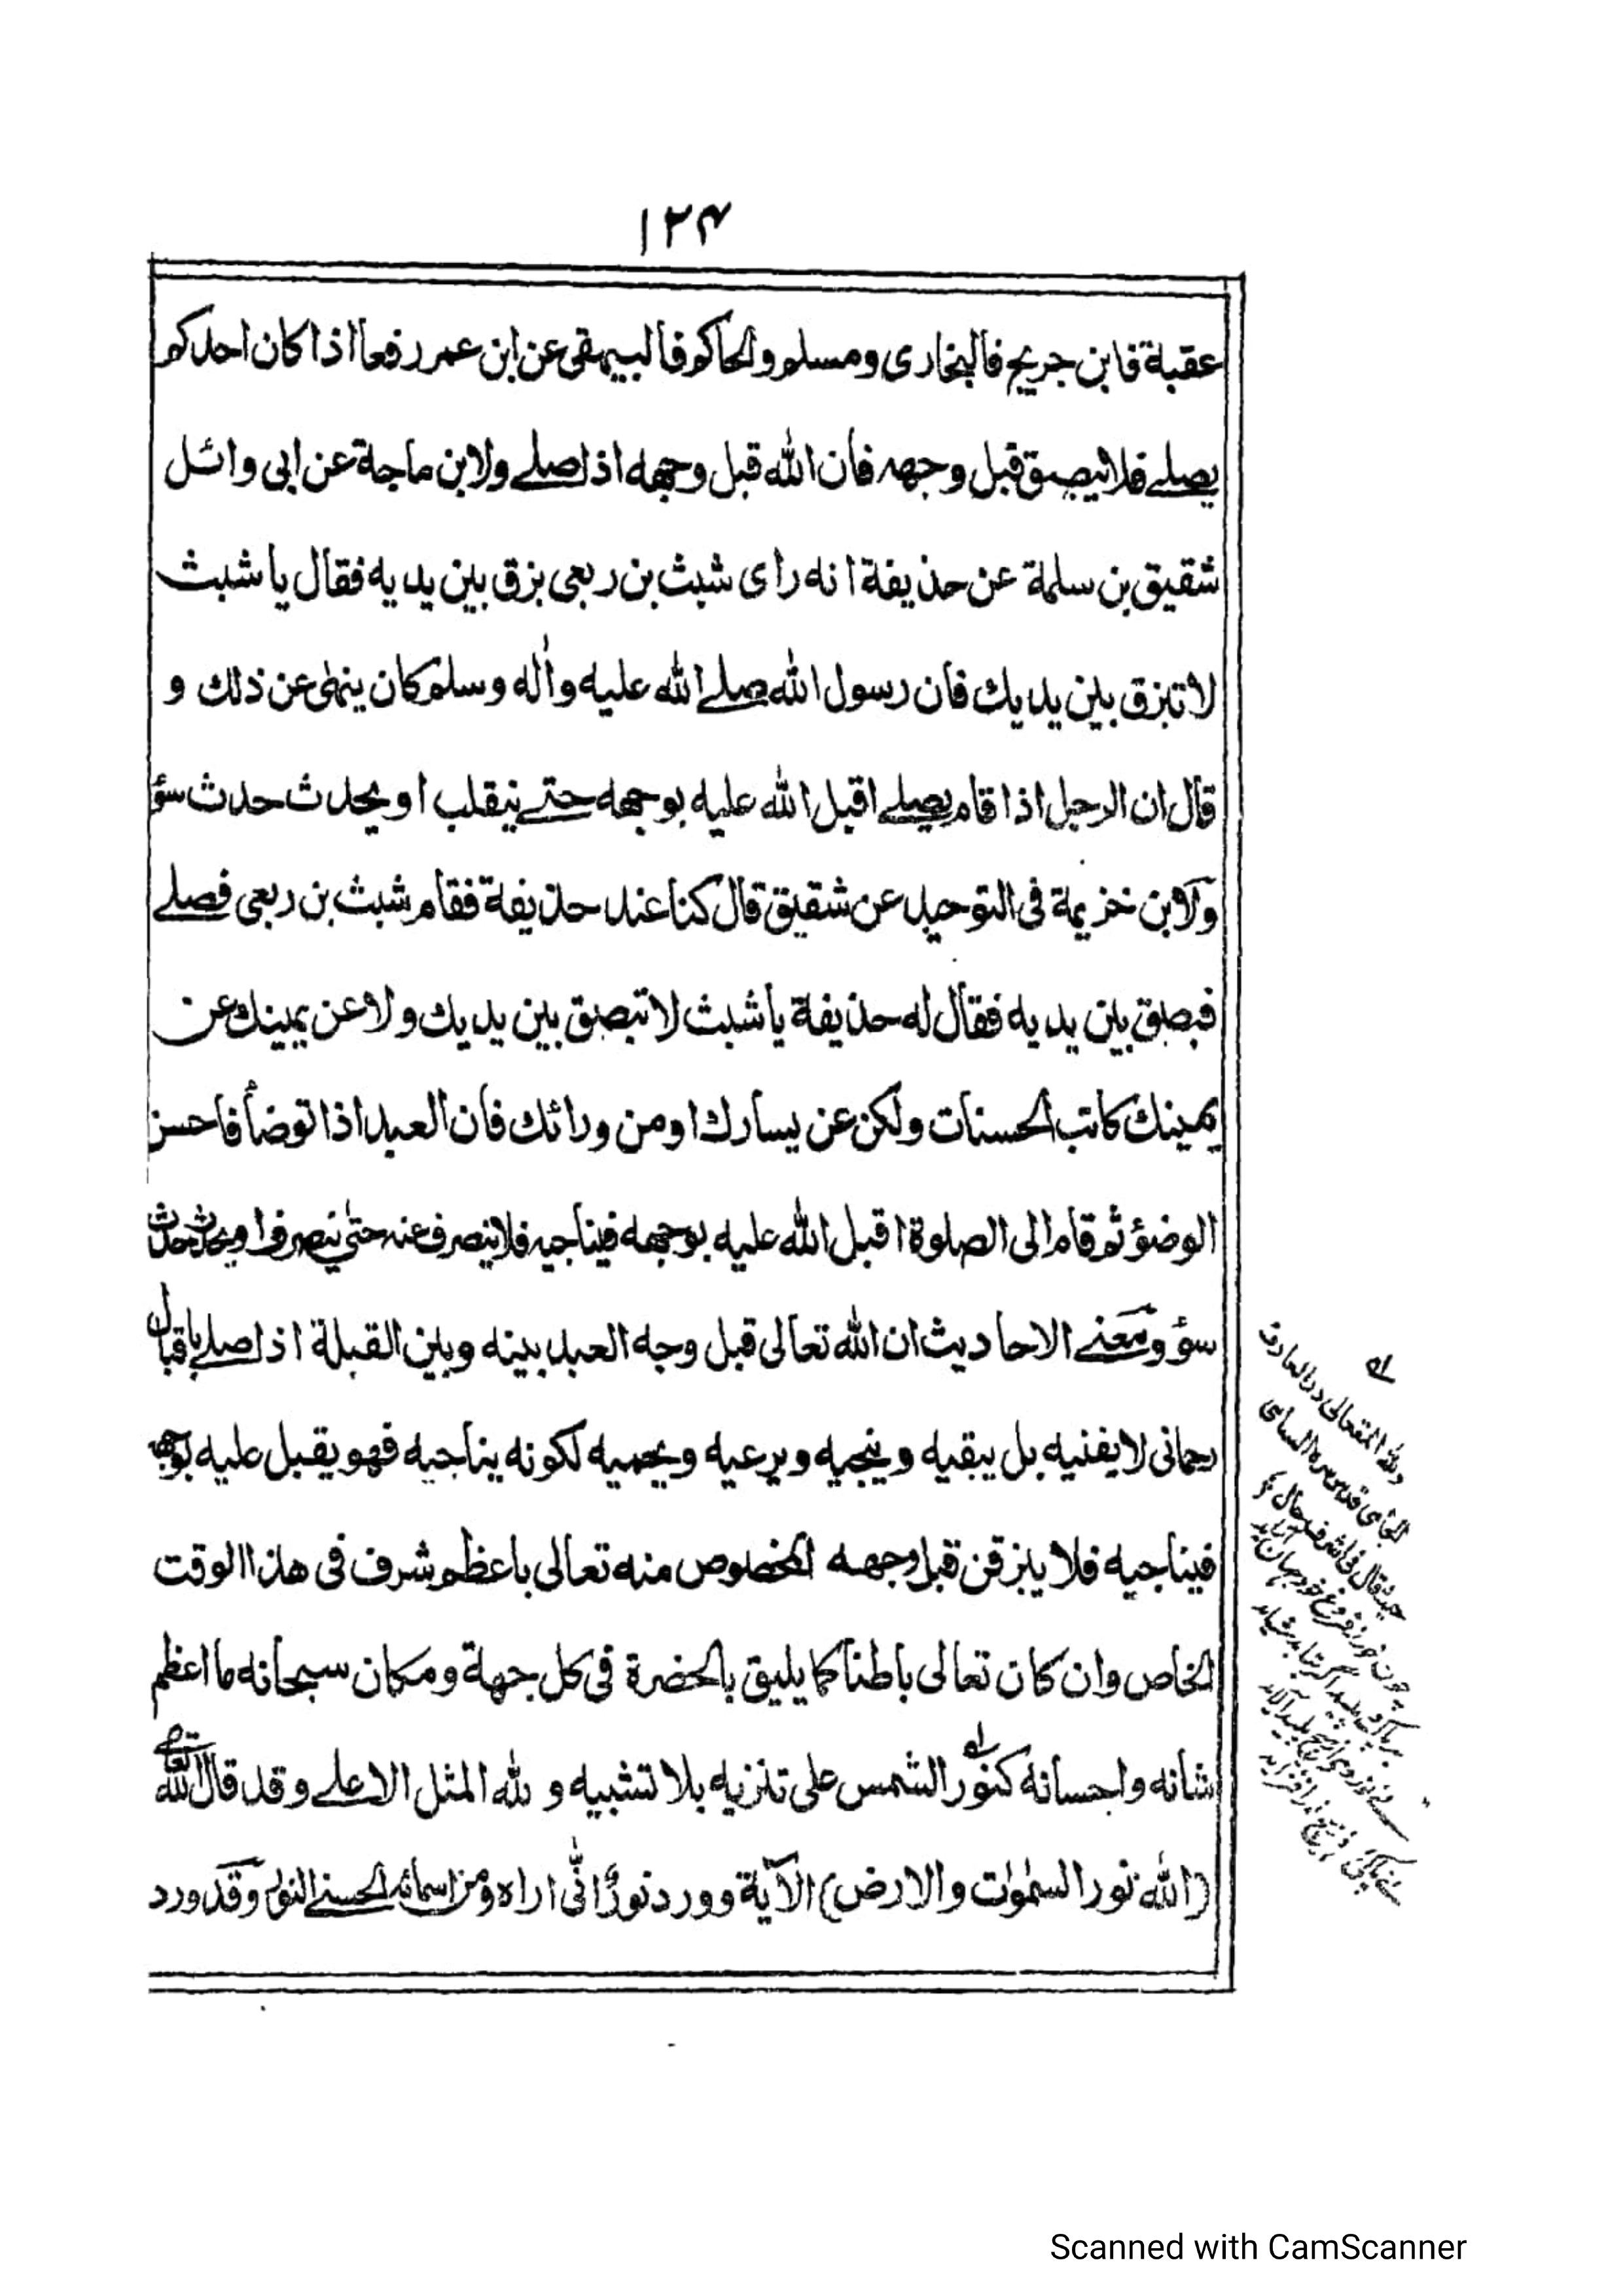 ۱۲۴
عقبة فابن جريج فالبخارى ومسلم والحاكم فالبيهقى عن ابن عمر رفعا اذا كان احدكم
يصلے فلا يبصق قبل وجهه فان الله قبل وجهه اذا صلے ولابن ماجة عن ابى وائل
شقيق بن سلمة عن حذيفة انه راى شبث بن ربعى بزق بين يديه فقال يا شبث
لا تبزق بين يديك فان رسول الله صلے الله عليه واٰله وسلم كان ينهٰى عن ذلك و
قال ان الرجل اذا قام يصلے اقبل الله عليه بوجهه حتے ينقلب او يحدث حدث سؤ
ولابن خزيمة فى التوحيد عن شقيق قال كنا عند حذيفة فقام شبث بن ربعى فصلے
فبصق بين يديه فقال له حذيفة يا شبث لا تبصق بين يديك ولا عن يمينك عن
يمينك كاتب الحسنات ولكن عن يسارك او من ورائك فان العبد اذا توضأ فاحسن
الوضوٴ ثم قام الى الصلوة اقبل الله عليه بوجهه فيناجيه فلا ينصرف عنه حتىٰ ينصرف او يحدث حدث
سؤ ومعنے الاحاديث ان الله تعالى قبل وجه العبد بينه وبين القبلة اذا صلے باقبال
رحمانى لا يفنيه بل يبقيه وينجيه ويرعيه ويحييه لكونه يناجيه فهو يقبل عليه بوجهه
فيناجيه فلا يبزقن قبل وجهه الخصوص منه تعالى باعظم شرف فى هذا الوقت
الخاص وان كان تعالى باطنا كما يليق بالحضرة فى كل جهة ومكان سبحانه ما اعظم
شانه واحسانه كنور الشمس على تنزيه بلا تشبيه و لله المثل الاعلے وقد قال الله تعالے
(الله نور السمٰوٰت والارض) الآية وورد نورٌ انّٰى اراه ومن اسمائه الحسنے النور وقد ورد
له
ولله المتعالى در العارف
الجامى قدس سره السامى
حيث قال فى اشرف حال
Scanned with CamScanner